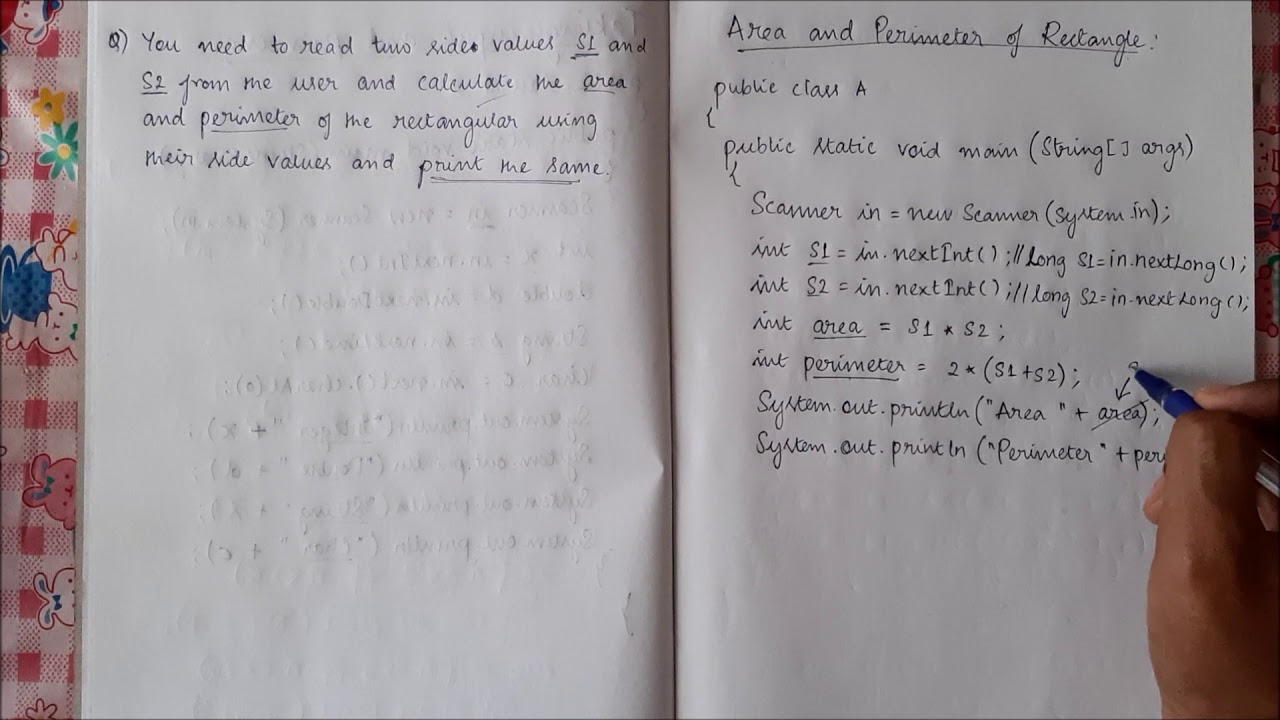 Q) You need to read two side values S1 and
S2 from the user and calculate the area
and perimeter of the rectangular using
their side values and print the same.
Area and Perimeter of Rectangle:
public class A
{
public static void main (String[] args)
{
Scanner in = new Scanner (System.in);
int S1 = in.nextInt() ; // long S1 = in.nextLong();
int S2 = in.nextInt() ; // long S2 = in.nextLong();
int area = S1 * S2 ;
int perimeter = 2 * (S1+S2) ;
System.out.println ("Area " + area);
System.out.println ("Perimeter " + per